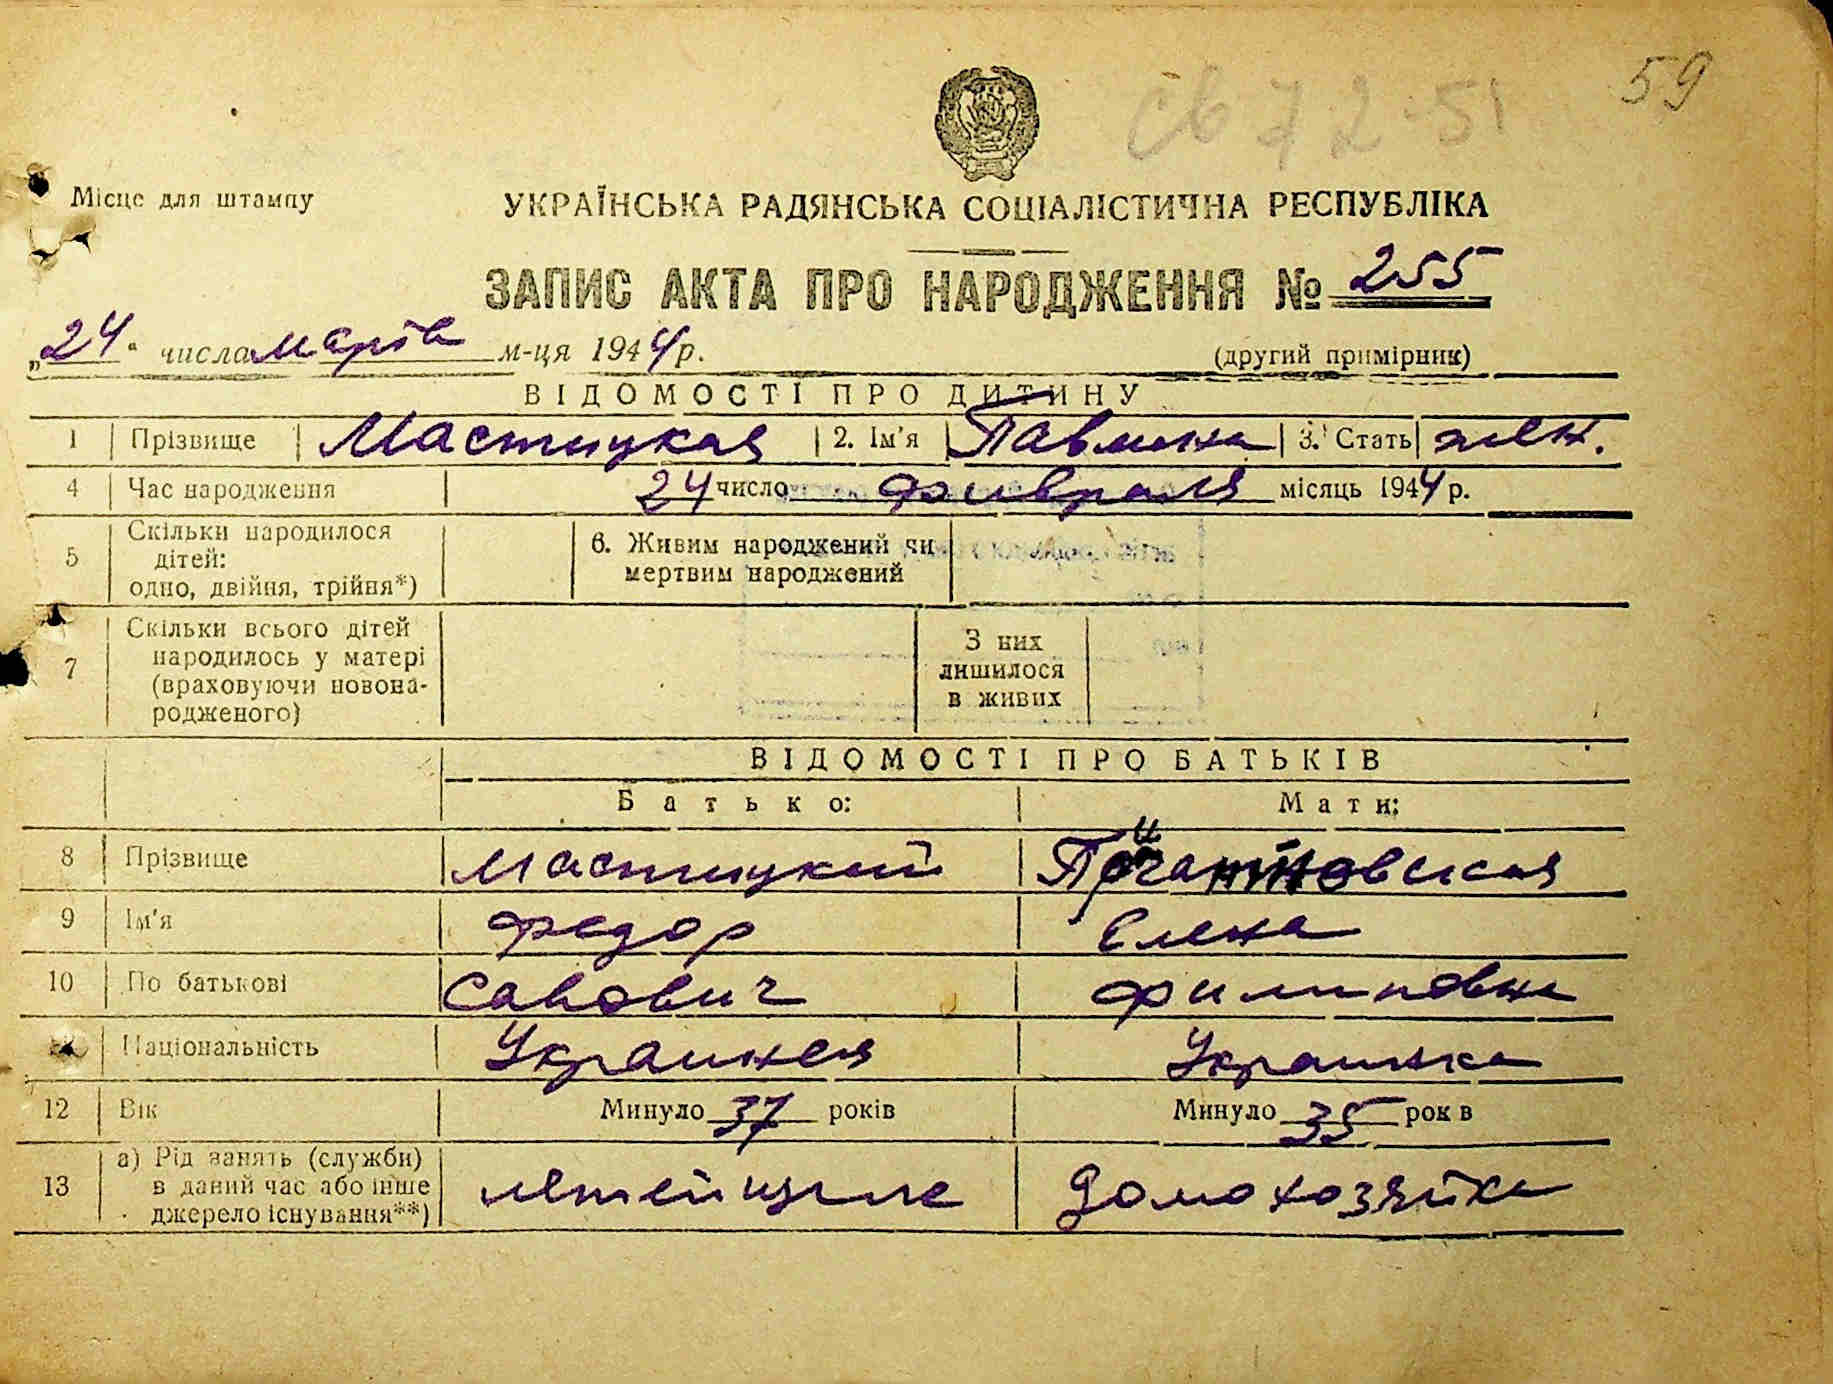 59
св 72-51
Місце для штампу
УКРАЇНСЬКА РАДЯНСЬКА СОЦІАЛІСТИЧНА РЕСПУБЛІКА
ЗАПИС АКТА ПРО НАРОДЖЕННЯ № 255
„24“ числа марта м-ця 1944 р.
(другий примірник)
ВІДОМОСТІ ПРО ДИТИНУ
1 Прізвище Мастицкая 2. Ім'я Павлина 3. Стать жен.
4 Час народження 24 число февраля місяць 1944 р.
5 Скільки народилося дітей: одно, двійня, трійня*) 6. Живим народжений чи мертвим народжений
7 Скільки всього дітей народилось у матері (враховуючи новонародженого) З них лишилося в живих
ВІДОМОСТІ ПРО БАТЬКІВ
Батько: Мати:
8 Прізвище Мастицкий
9 Ім'я Федор Елена
10 По батькові Савович Филиповна
Національність Украинец Украинка
12 Вік Минуло 37 років Минуло 35 рок в
13 а) Рід занять (служби) в даний час або інше джерело існування**) домохозяйка